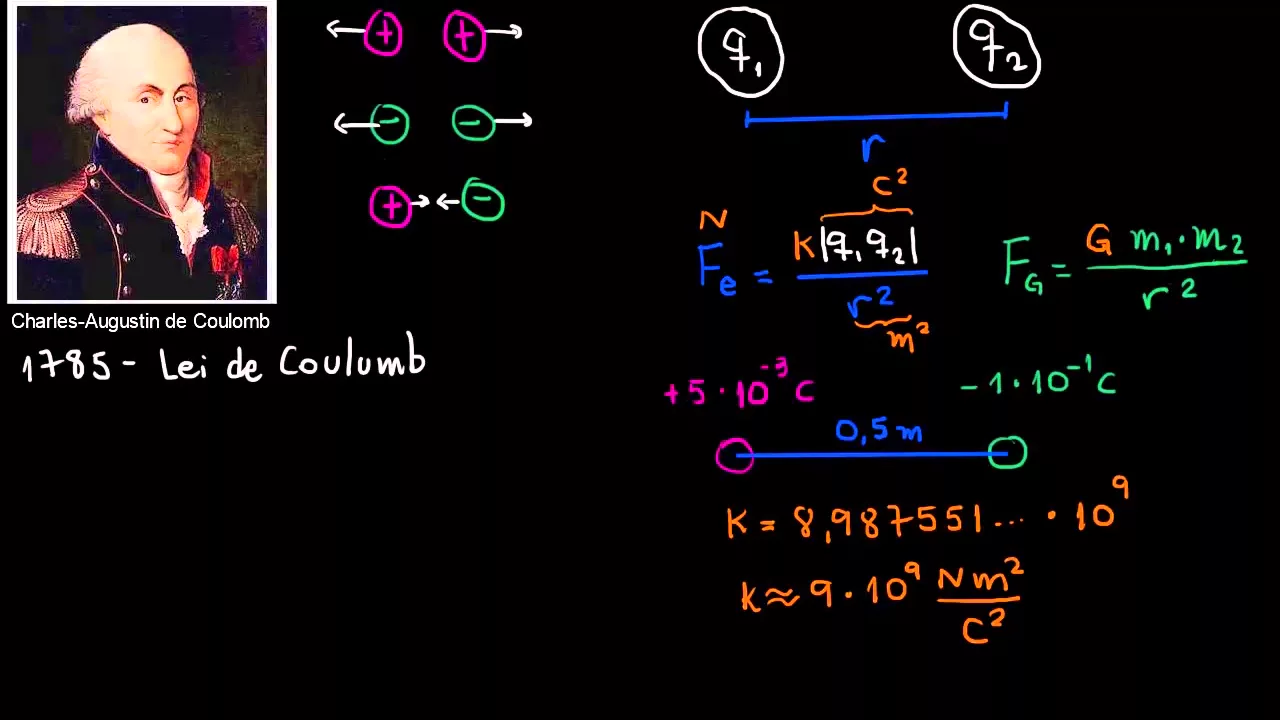 Charles-Augustin de Coulomb
1785 - Lei de Coulumb
+ +
- -
+ -
q₁ q₂
r
N C²
Fe = K|q₁q₂| / r²
m²
F_G = G m₁·m₂ / r²
+5·10⁻³C -1·10⁻¹C
0,5m
K = 8,987551... · 10⁹
K ≈ 9·10⁹ Nm² / C²